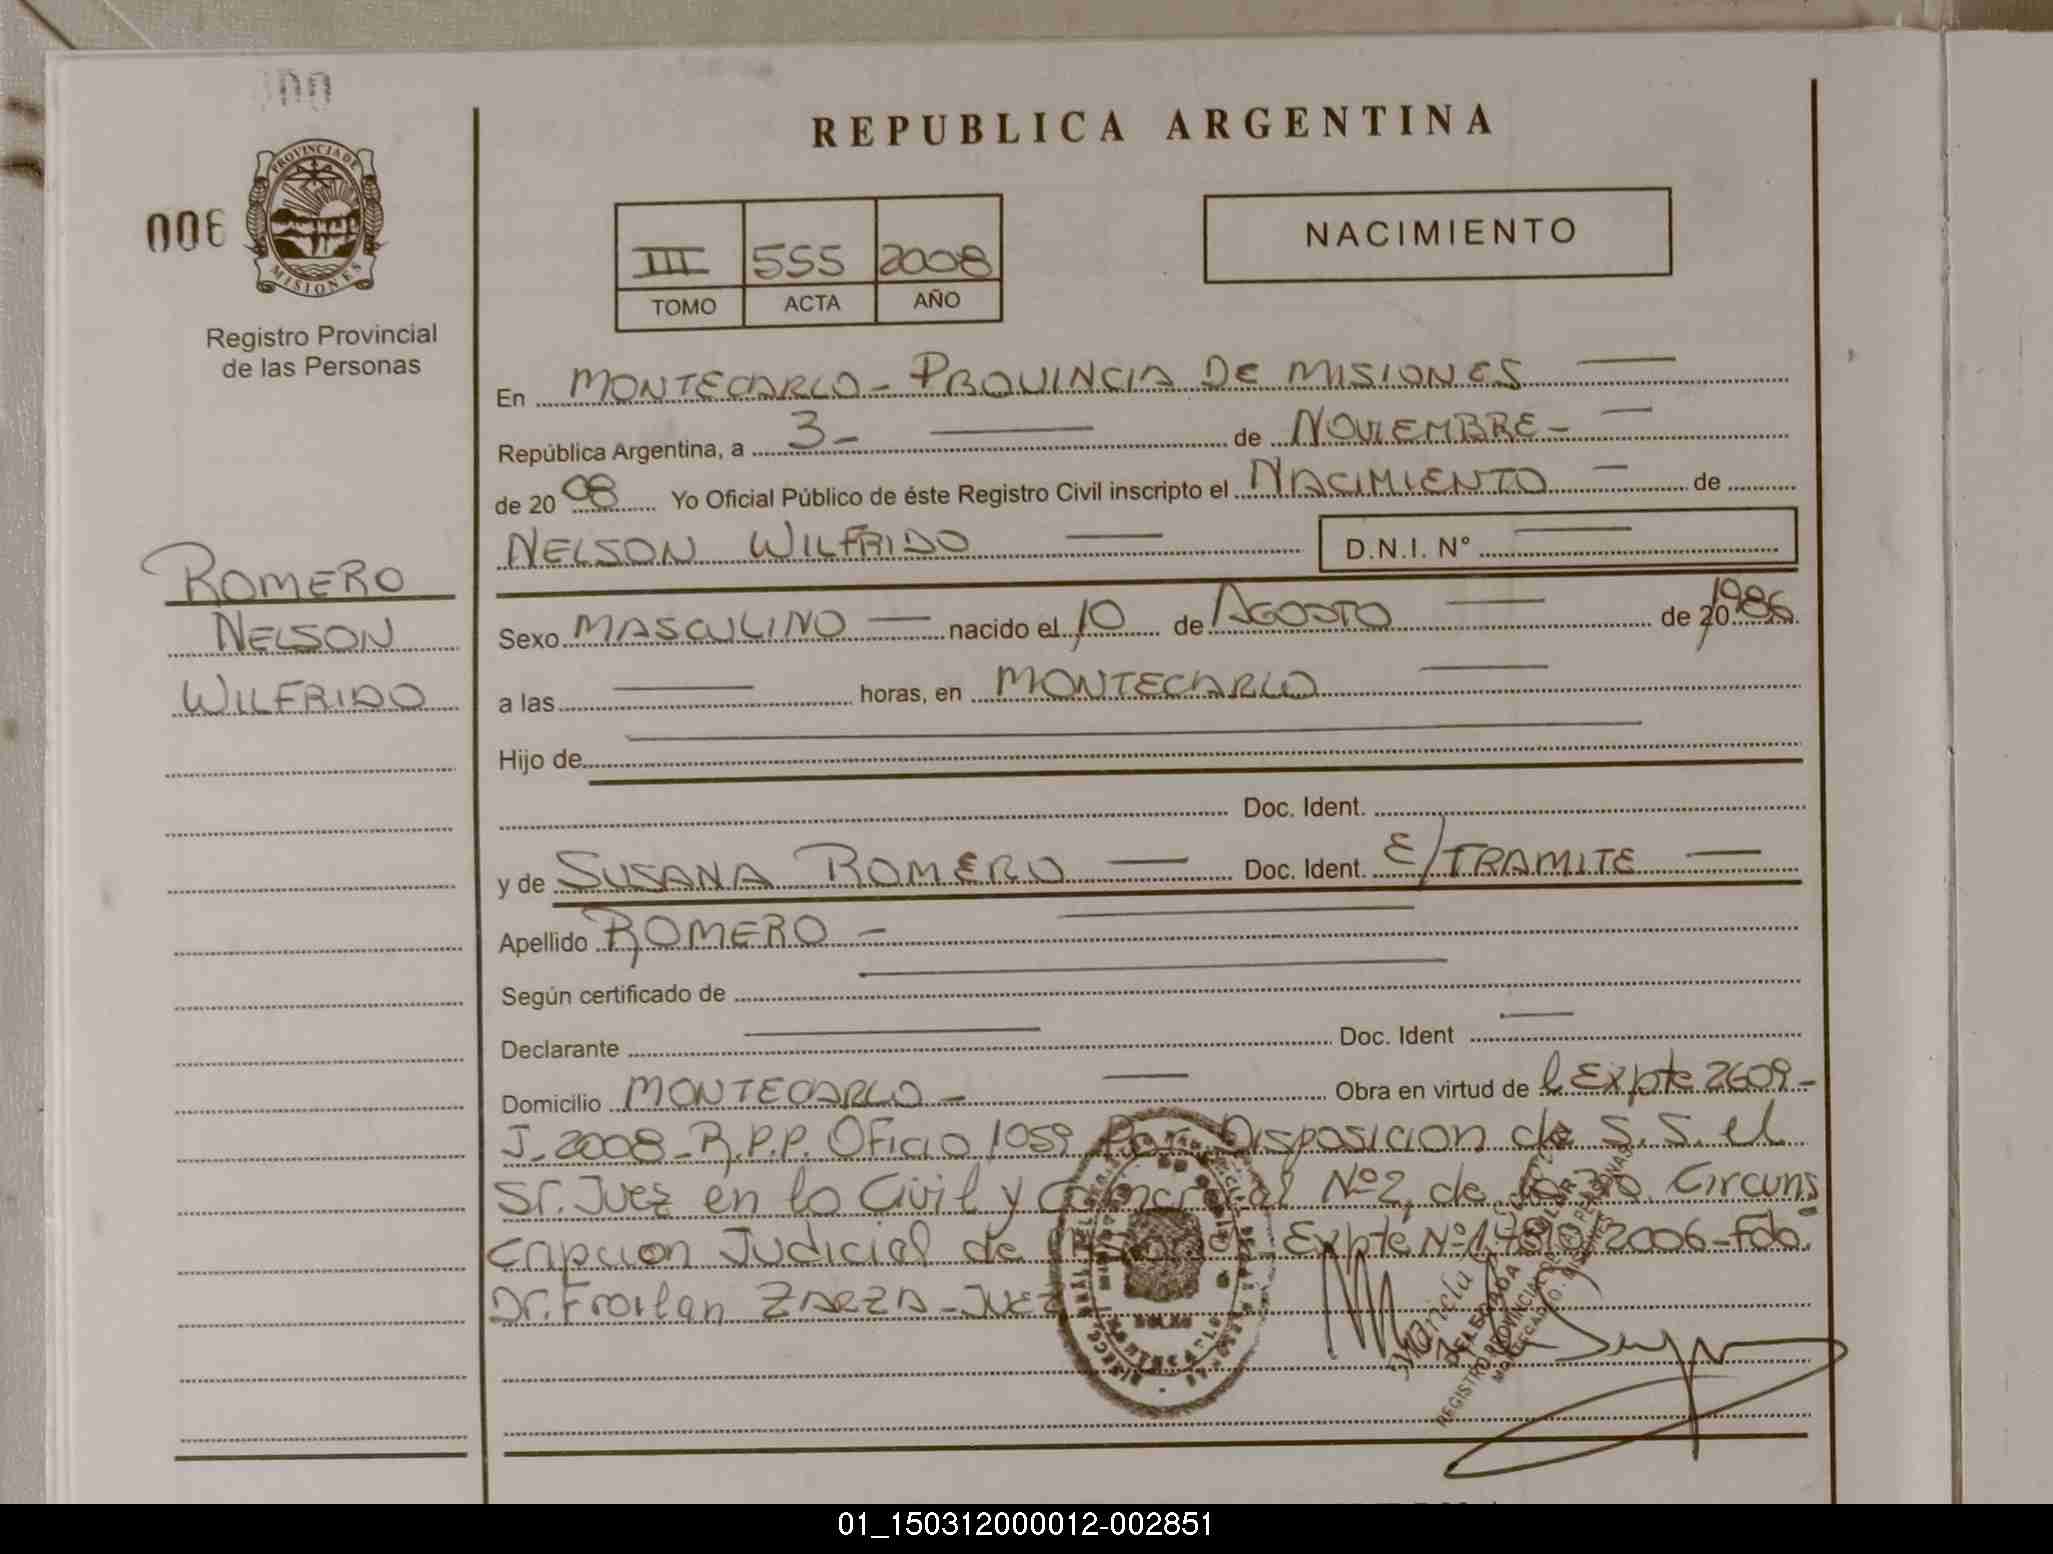 REPUBLICA ARGENTINA
006
PROVINCIA DE
MISIONES
Registro Provincial
de las Personas
NACIMIENTO
III 555 2008
TOMO ACTA AÑO
En MONTECARLO - PROVINCIA DE MISIONES
República Argentina, a 3 - de NOVIEMBRE -
de 2008 Yo Oficial Público de éste Registro Civil inscripto el NACIMIENTO de
NELSON WILFRIDO D.N.I. Nº
ROMERO
NELSON
WILFRIDO
Sexo MASCULINO nacido el 10 de AGOSTO de 20 1986
a las horas, en MONTECARLO
Hijo de
Doc. Ident.
y de SUSANA ROMERO Doc. Ident. E/TRAMITE
Apellido ROMERO -
Según certificado de
Declarante Doc. Ident
Domicilio MONTECARLO - Obra en virtud de l Expte 2609 -
J-2008-R.P.P. OFicio 1059 Por Disposicion de S.S. el
Sr. Juez en lo Civil y Comercial Nº2, de la Circuns
cripcion Judicial de Expte Nº 2006-Fdo.
Dr. Froilan ZARZA - JUEZ
DELEGADA TITULAR
REGISTRO PROVINCIAL DE LAS PERSONAS
MONTECARLO - MISIONES
01_150312000012-002851